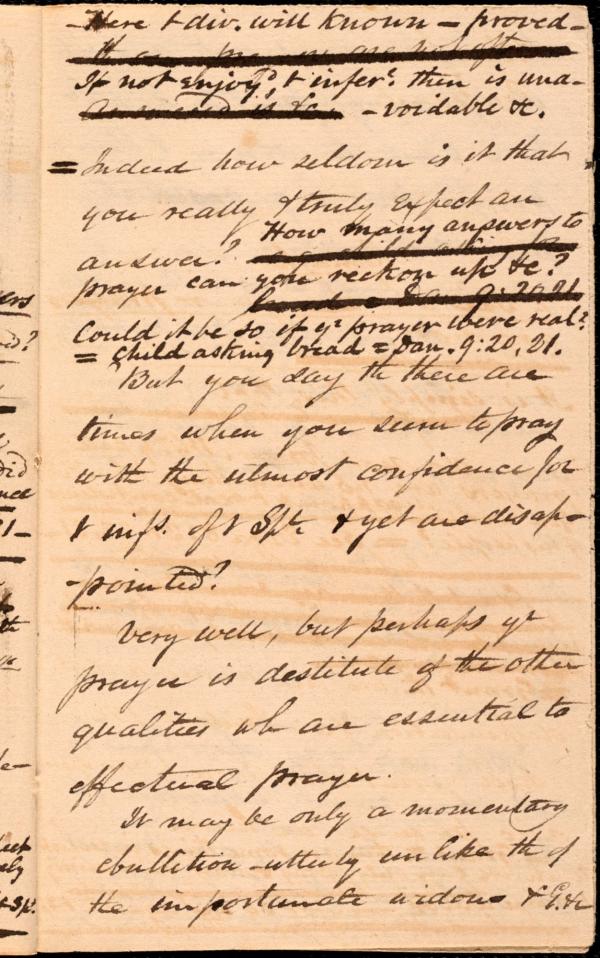 Here t div. will known - proved -
If not enjoyd, t inferc. then is una-
-voidable &c.
= Indeed how seldom is it that
you really & truly expect an
answer? How many answers to
prayer can you reckon up &c?
Could it be so if yr prayer were real?
= Child asking bread = Dan. 9:20,21.
But you say th there are
times when you seem to pray
with the utmost confidence for
t infs. of t Spt. & yet are disap-
-pointed?
Very well, but perhaps yr
prayer is destitute of the other
qualities wh are essential to
effectual prayer.
It may be only a momentary
ebullition - utterly unlike th of
the importunate widows &c